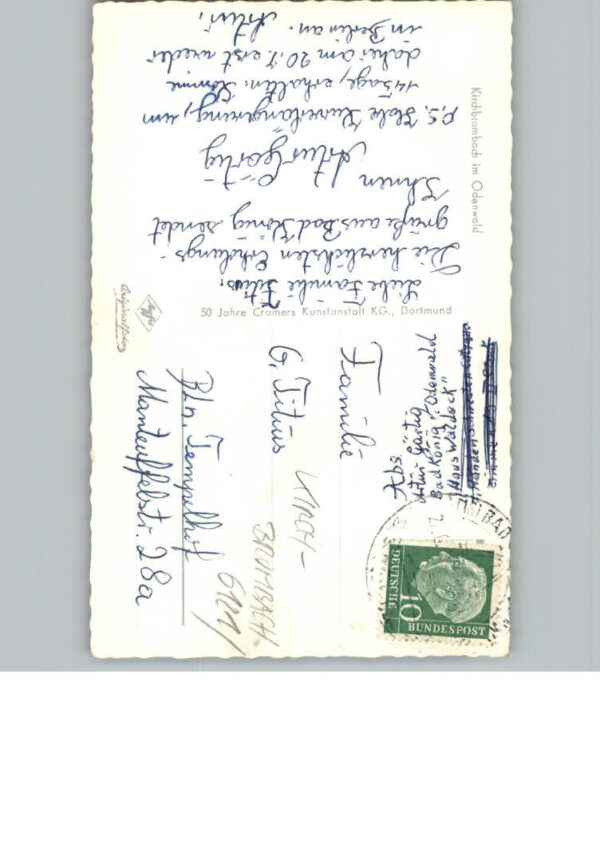 Kirchbrombach im Odenwald
Liebe Familie Titius.
Die herzlichsten Erholungs-
grüße aus Bad König sendet
Ihnen Artur Gärtig
P.S. Habe Kurverlängerung, um
14 Tage, erhalten. Komme
daher am 20.7. erst wieder
in Berlin an. Artur.
50 Jahre Cramers Kunstanstalt KG., Dortmund
Agfa
Originalfoto
Abs.
Artur Gärtig
Bad König i. Odenwald
"Haus Waldeck"
DEUTSCHE
BUNDESPOST
10
Familie
G. Titius
Bln. Tempelhof
Manteuffelstr. 28a
KIRCH-
BROMBACH
6121